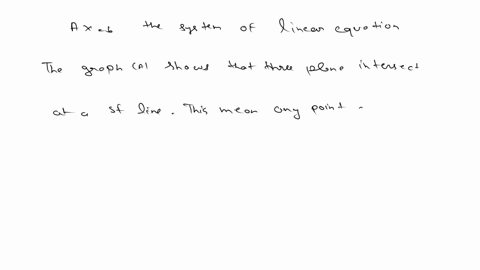 Ax=b the system of linear equation
The graph (A) shows that three plane intersect
at a st line. This mean any point